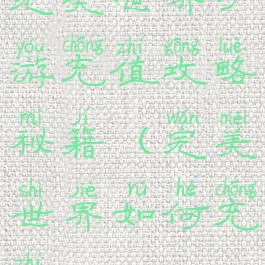 完美世界手
yóu chōng zhí gōng luè
游充值攻略
mì jí wán měi
秘籍（完美
shì jiè rú hé chōng
世界如何充
zhí